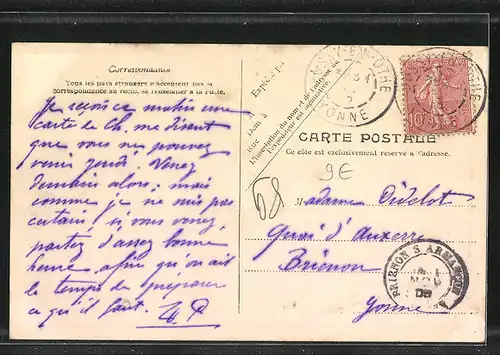 Correspondance
Tous les pays étrangers n'acceptent pas la
correspondance au verso, se renseigner à la Poste.
Je reçois ce matin une
carte de Ch. me disant
que vous ne pouvez
venir jeudi. Venez
demain alors; mais
comme je ne suis pas
certain si vous venez,
partez d'assez bonne
heure afin qu'on ait
le temps de préparer
ce qu'il faut.
Expédié par
Rue
L'inscription du nom et de l'adresse de
l'expéditeur est facultative.
EN-OTHE
YONNE
10
CARTE POSTALE
Ce côté est exclusivement réservé à l'adresse.
9E
68
Madame Didelot
Quai d'Auxerre
Brienon
Yonne
BRIENON S ARMANÇON
NOV